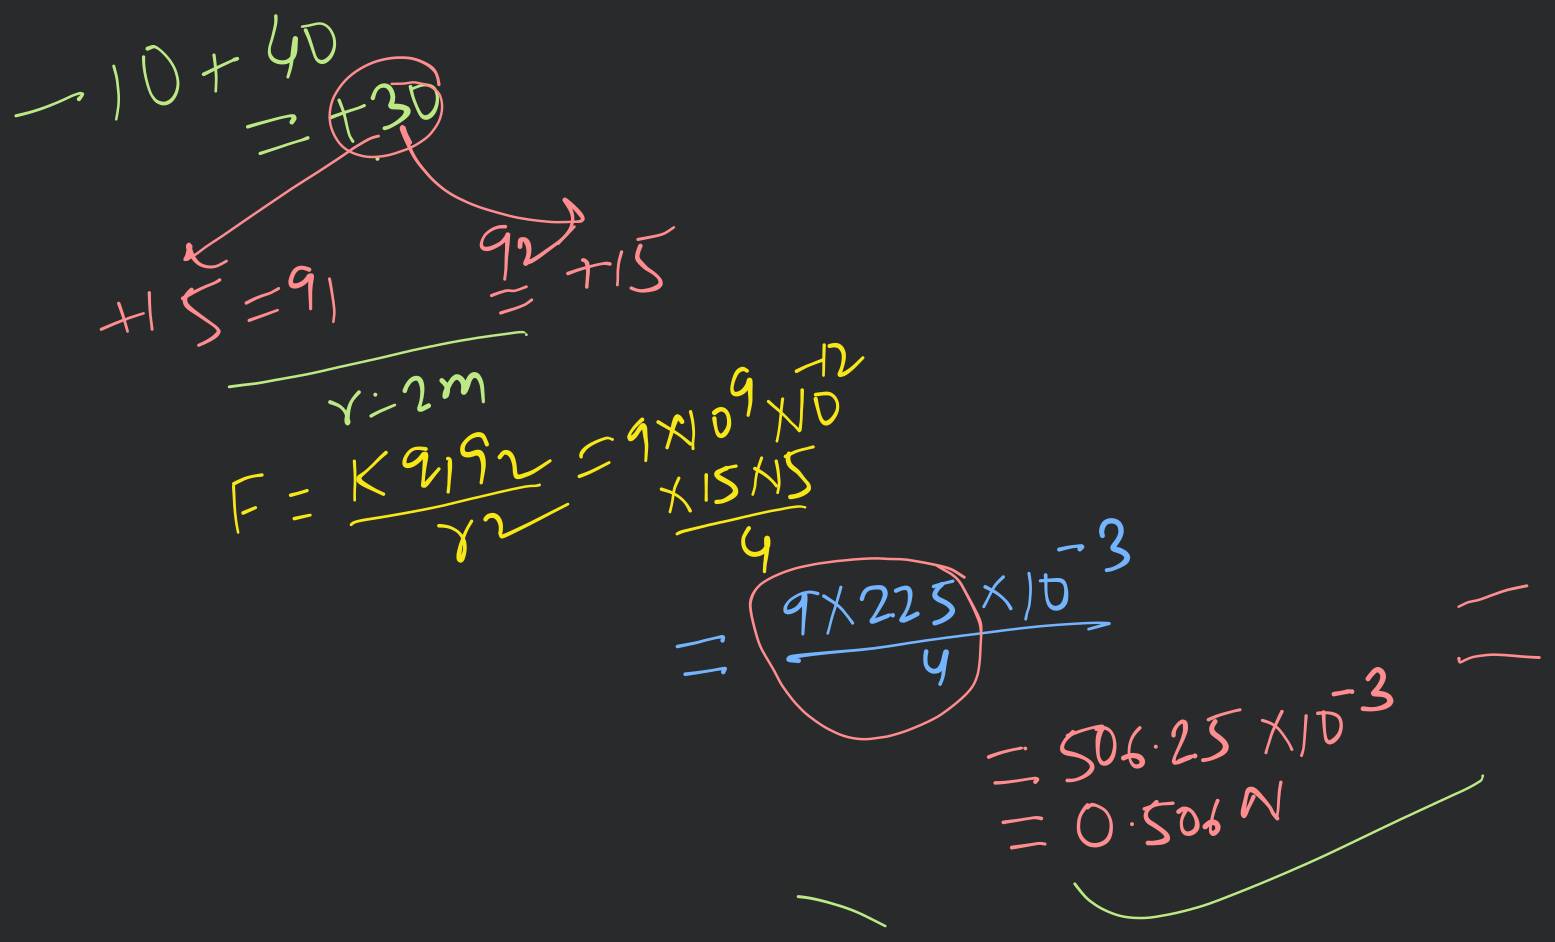 -10+40
= +30
+15=q1
q2 = +15
r=2m
F = Kq1q2/r2 = 9×10^9×10^-12×15×15/4
= 9×225×10^-3/4
= 506.25×10^-3
= 0.506 N
=